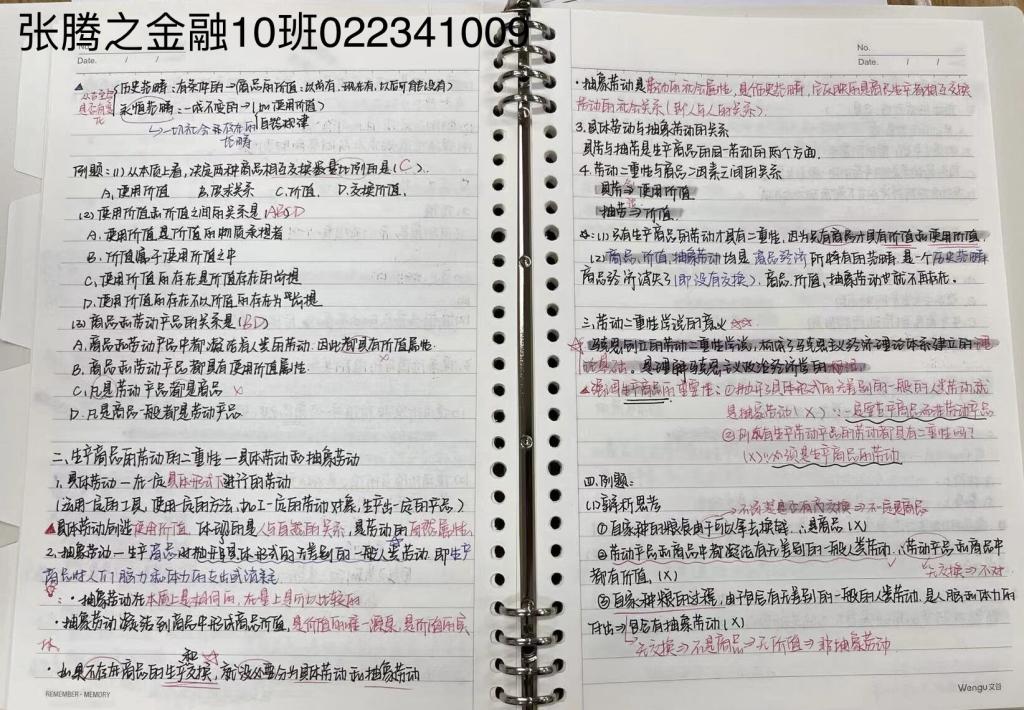 张腾之金融10班022341009
No.
Date. / /
▲ 历史范畴:有条件的→商品的价值:以前有,现在有,以后可能没有)
从古至今是否有变化
永恒范畴:一成不变的→(如使用价值)
自然规律
↳一切社会都存在的范畴
例题:(1)从本质上看,决定两种商品相互交换数量比例的是(C).
A.使用价值 B.供求关系 C.价值. D.交换价值.
(2)使用价值和价值之间的关系是(ABD
A.使用价值是价值的物质承担者
B.价值寓于使用价值之中
C.使用价值的存在是价值存在的前提
D.使用价值的存在不以价值的存在为前提
(3)商品和劳动产品的关系是(BD)
A.商品和劳动产品中都凝结着人类的劳动.因此都具有价值属性. ×
B.商品和劳动产品都具有使用价值属性.
C.凡是劳动产品都是商品 ×
D.凡是商品一般都是劳动产品
二、生产商品的劳动的二重性—具体劳动和抽象劳动
1.具体劳动—在一定具体形式下进行的劳动
(运用一定的工具,使用一定的方法,加工一定的劳动对象,生产出一定的产品)
▲具体劳动创造使用价值.体现的是人与自然的关系,是劳动的自然属性.
2.抽象劳动—生产商品时抽去具体形式的无差别的一般人类劳动.即生产
商品时人们脑力和体力的支出或消耗
:·抽象劳动在本质上是相同的,在量上是可以比较的
·抽象劳动凝结到商品中形成商品价值,是价值的唯一源泉,是价值的实
体
·如果不存在商品的生产和交换,就没必要分为具体劳动和抽象劳动
REMEMBER · MEMORY
No.
Date. / /
·抽象劳动是劳动的社会属性,是历史范畴,它反映的是商品生产者相互交换
劳动的社会关系(即人与人的关系).
3.具体劳动与抽象劳动的关系
具劳与抽劳是生产商品的同一劳动的两个方面.
4.劳动二重性与商品二因素之间的关系
具劳⇒使用价值
抽劳⇒价值
☆:(1)只有生产商品的劳动才具有二重性,因为只有商品才具有价值和使用价值.
(2)商品、价值、抽象劳动均是商品经济所特有的范畴,是一个历史范畴
商品经济消失了(即没有交换).商品、价值、抽象劳动也就不再存在。
三、劳动二重性学说的意义☆☆
☆马克思创立的劳动二重性学说,构成了马克思主义经济理论体系建立的理
论基础。是理解马克思主义政治经济学的枢纽.
▲强调生产商品的重要性:①抽去了具体形式的无差别的一般的人类劳动就
是抽象劳动(×) ∵一定要生产商品而非劳动产品
②所有生产劳动产品的劳动都具有二重性吗?
(×)∵必须是生产商品的劳动
四.例题:
(1)辨析思考
→不清楚是否有内交换→不一定是商品
①自家种的粮食由于可以拿去换钱∴是商品(×)
②劳动产品和商品中都凝结有无差别的一般人类劳动.∴劳动产品和商品中
都有价值.(×)
无交换⇒不对
③自家种粮的过程,由于包含有无差别的一般的人类劳动.是人脑和体力的
付出⇒包含有抽象劳动(×)
↳无交换⇒不是商品⇒无价值⇒非抽象劳动
Wengu文谷